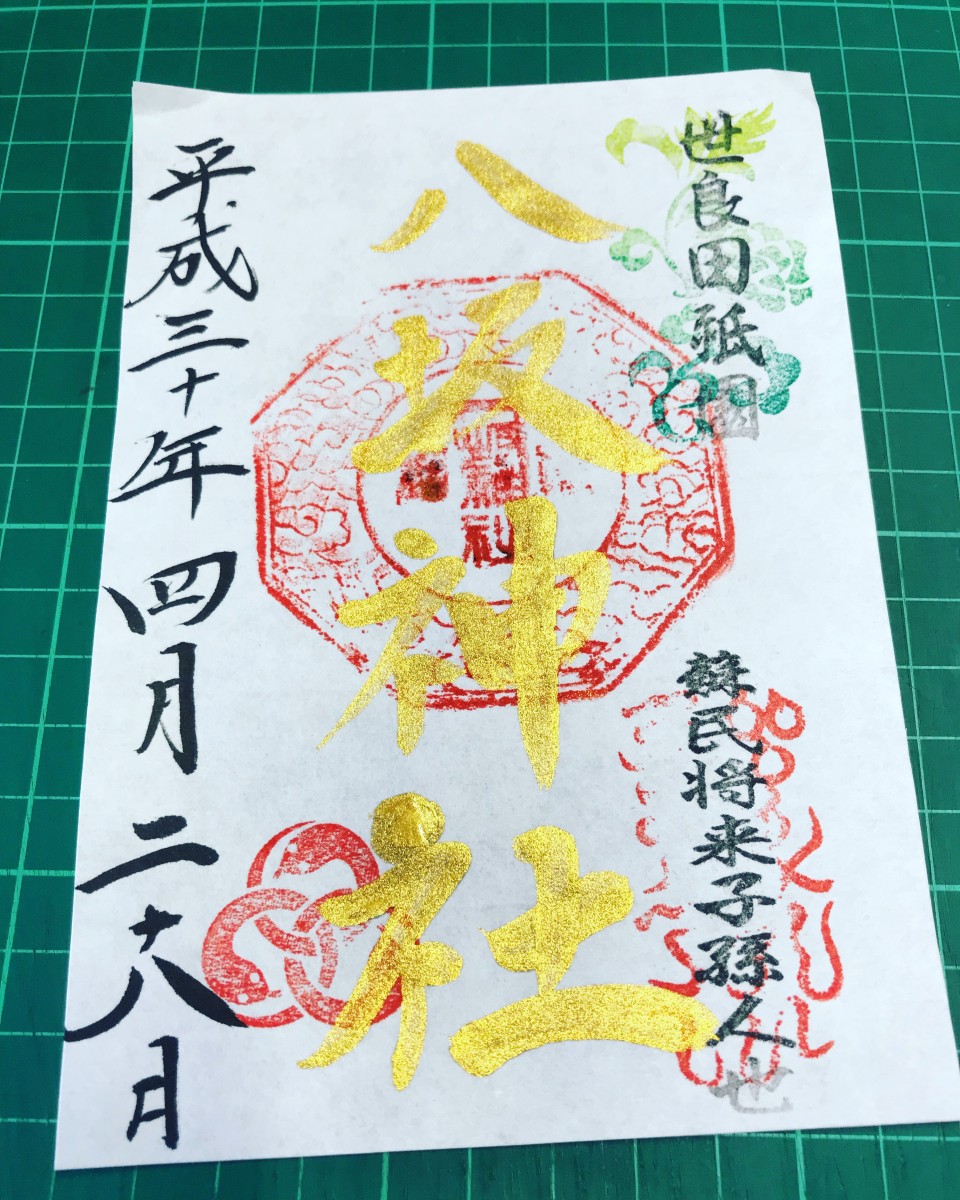 世良田祇園
蘇民将来子孫人也
八坂神社
平成三十年 四月 二十八日